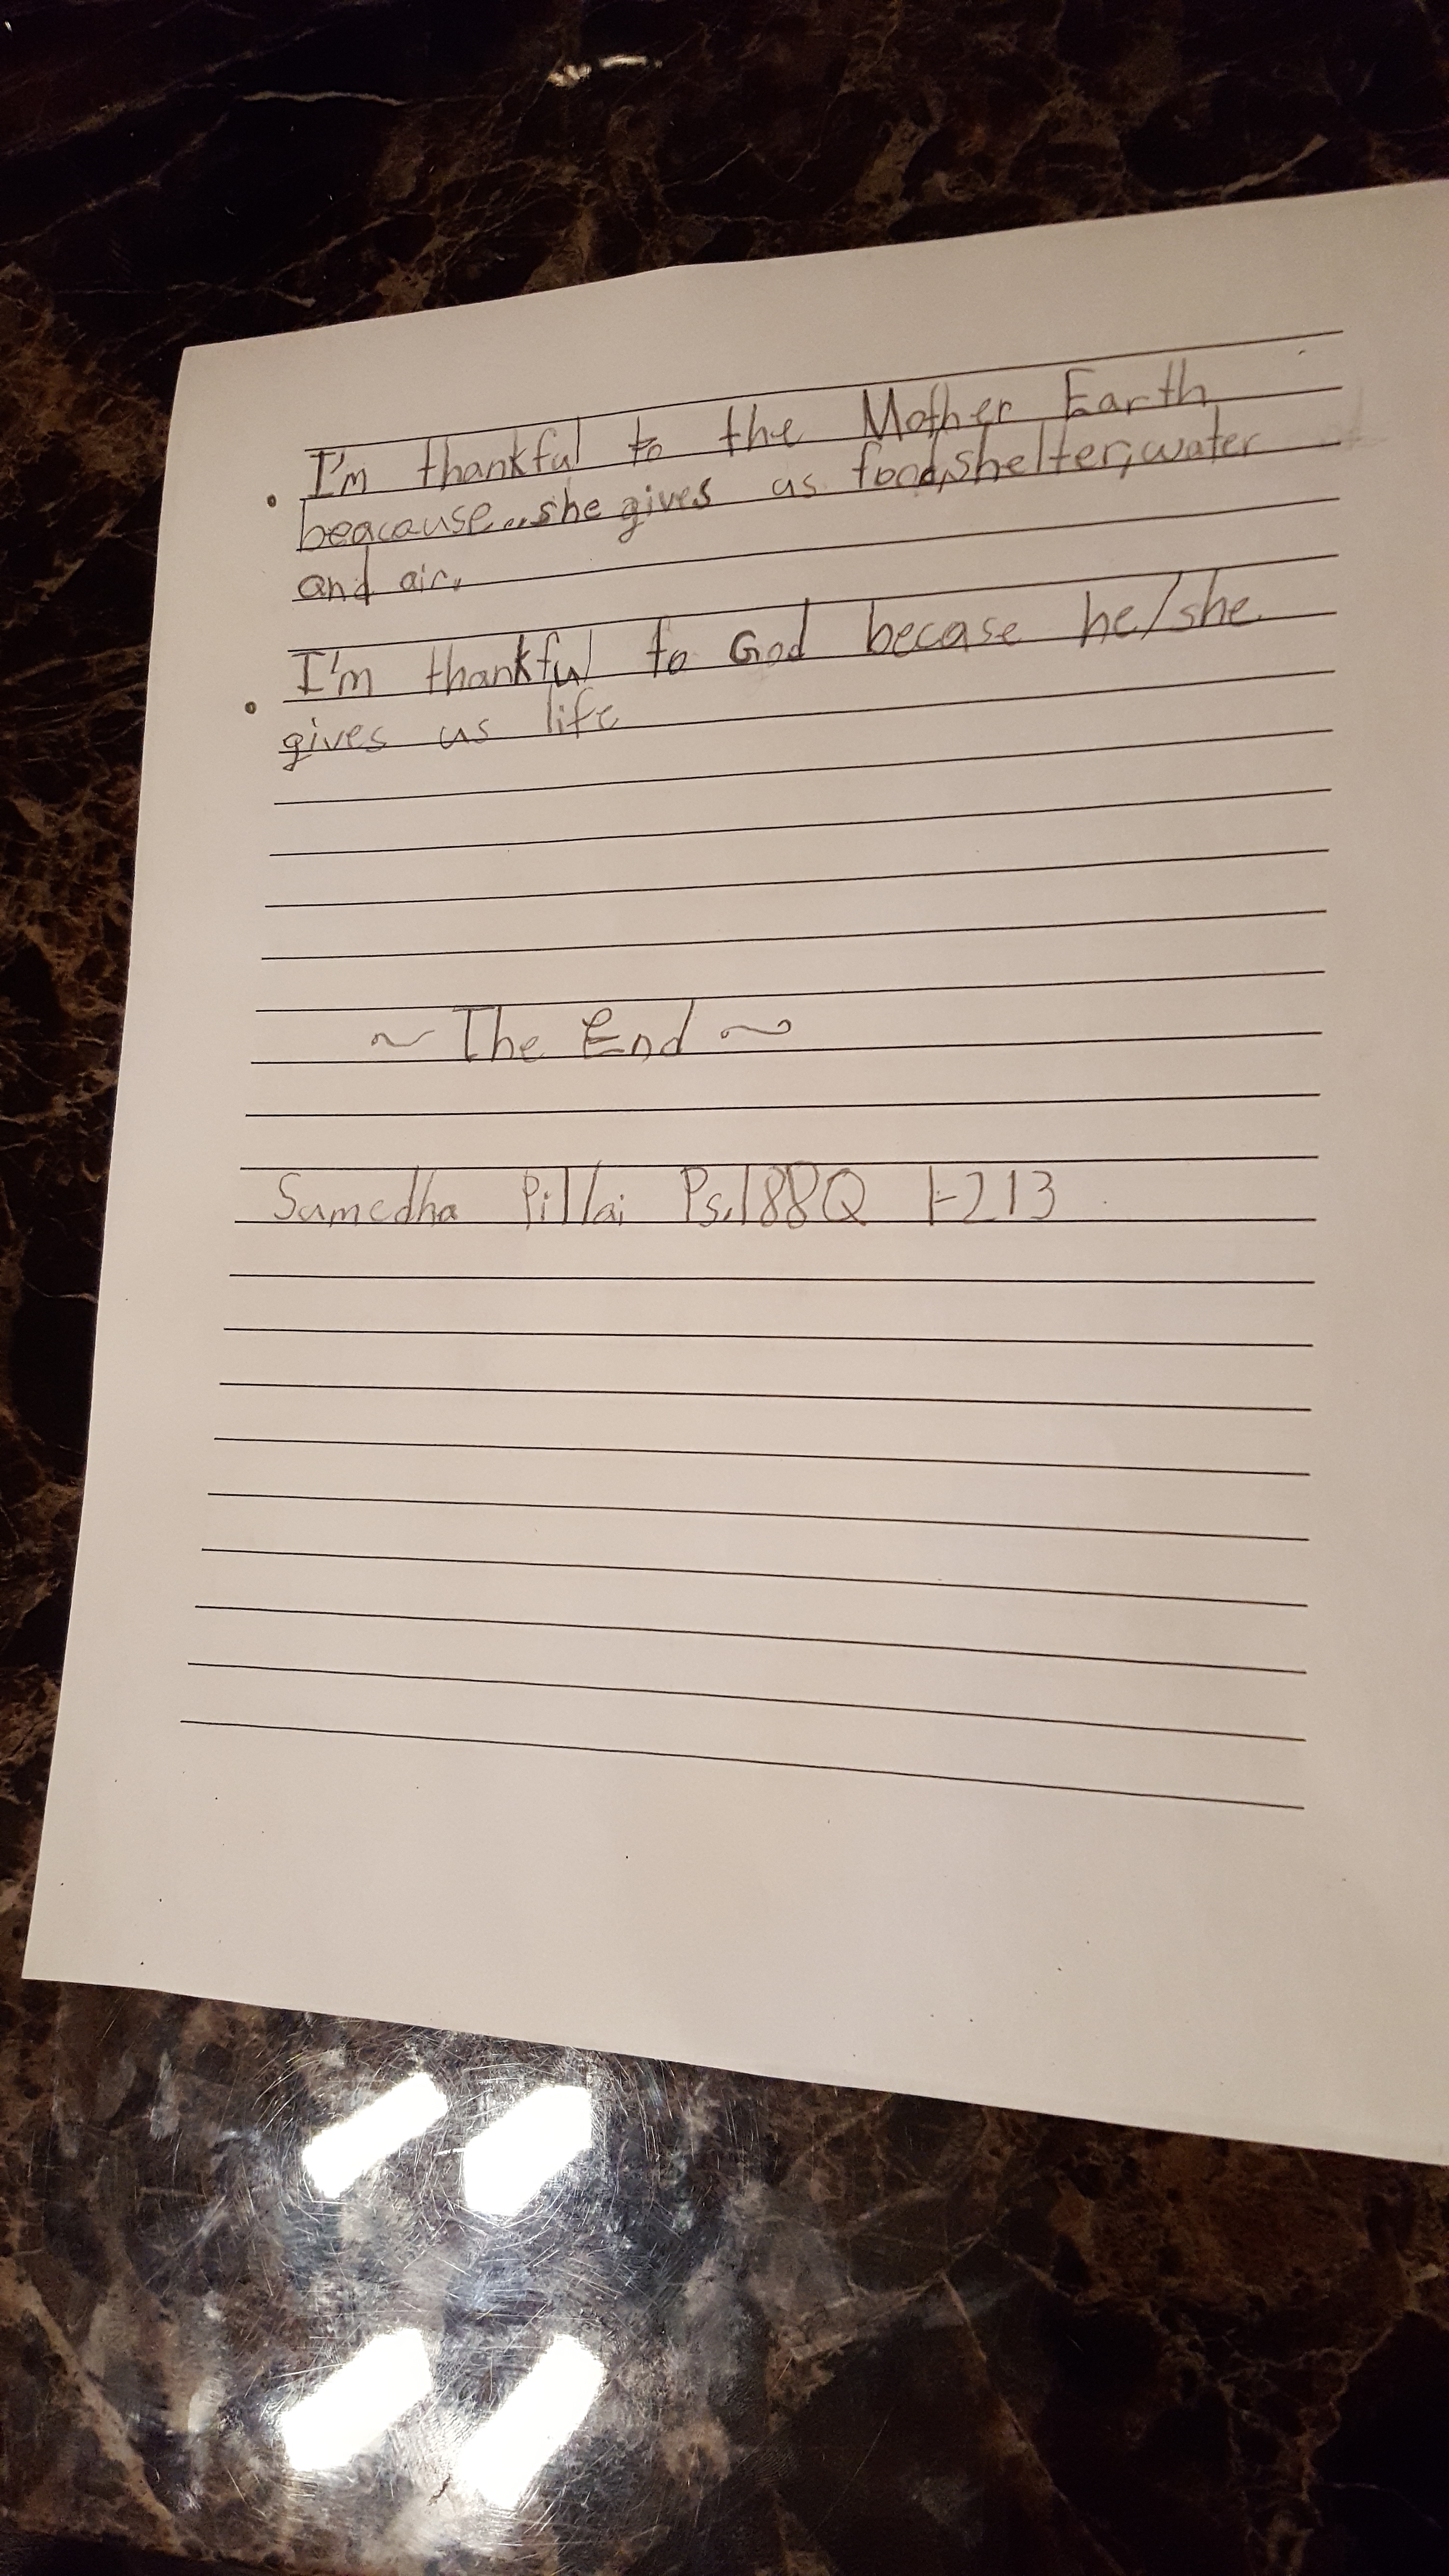 • I'm thankful to the Mother Earth
beacause...she gives us food,shelter,water
and air.
• I'm thankful to God becase he/she
gives us life
~ The End ~
Sumedha Pillai Ps.188Q 1-213